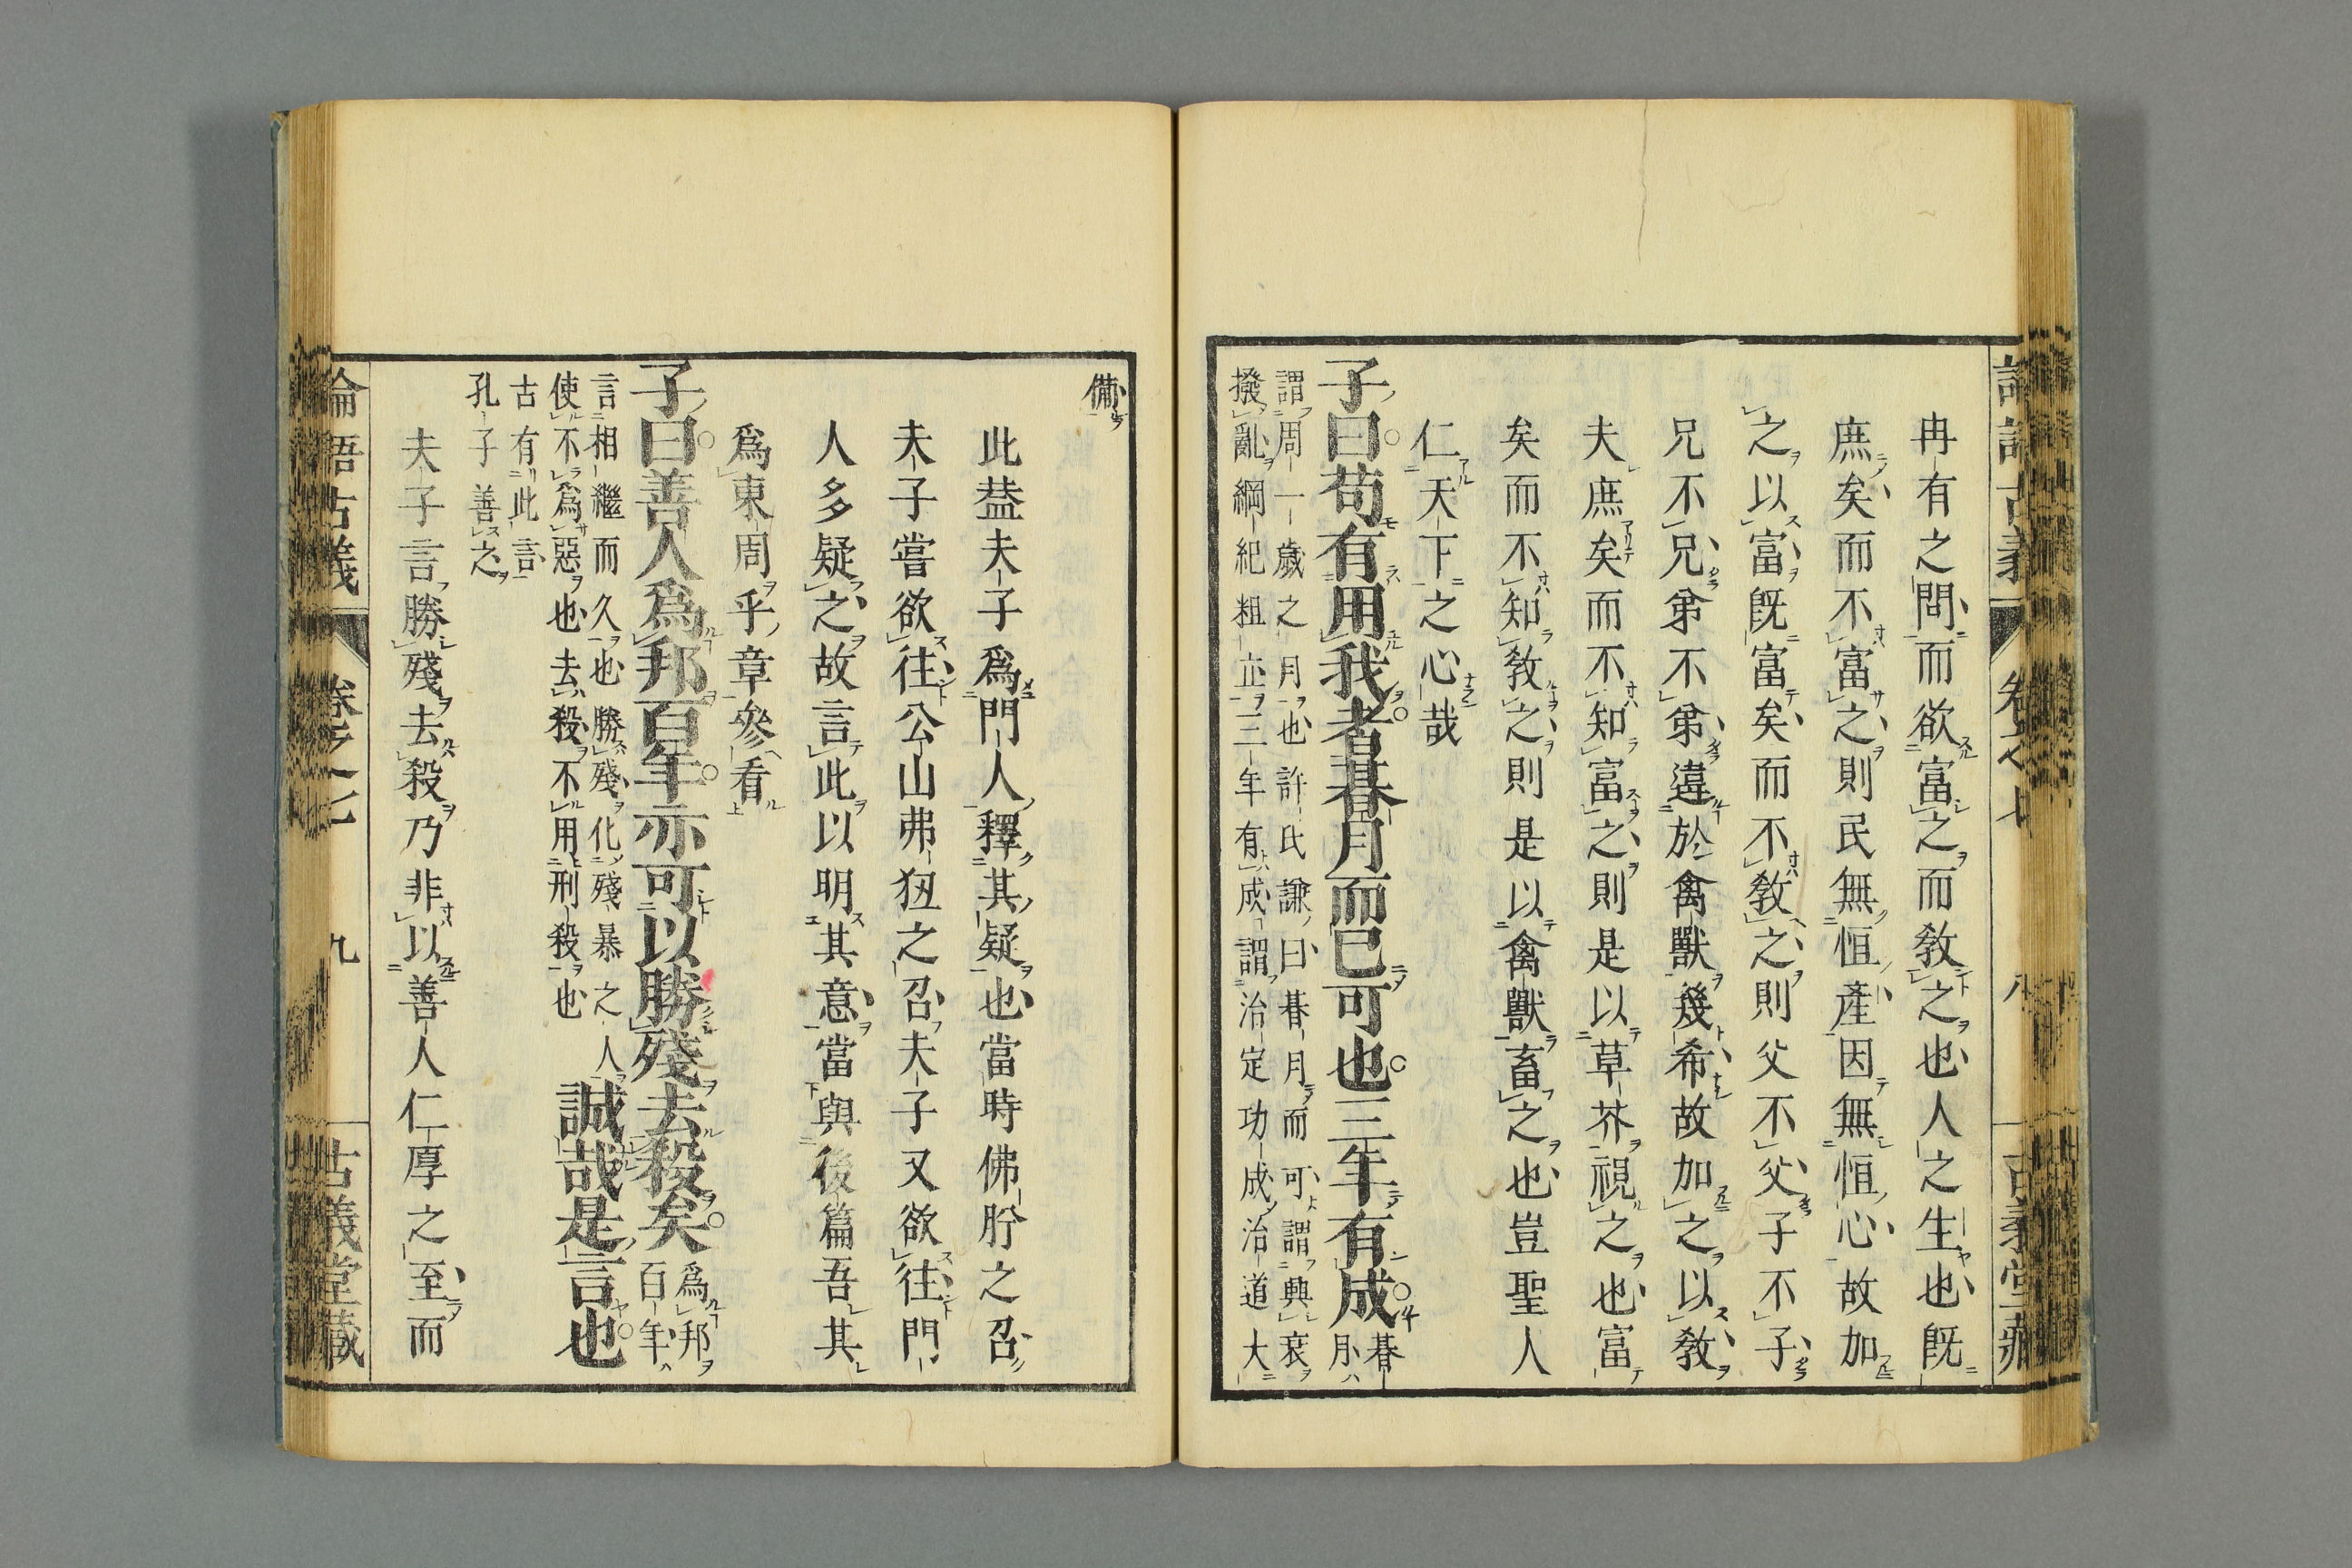 冉有之問而欲富之而教之也人之生也既
庶矣而不富之則民無恒產因無恒心故加
之以富既富矣而不教之則父不父子不子
兄不兄弟不弟違於禽獸幾希故加之以教
夫庶矣而不知富之則是以草芥視之也富
矣而不知教之則是以禽獸畜之也豈聖人
仁天下之心哉
子曰苟有用我者朞月而已可也三年有成
朞月
謂周一歲之月也許氏謙曰朞月而可謂興衰
撥亂綱紀粗立三年有成謂治定功成治道大
備
此葢夫子爲門人釋其疑也當時佛肸之召
夫子嘗欲往公山弗狃之召夫子又欲往門
人多疑之故言此以明其意當與後篇吾其
爲東周乎章參看
子曰善人爲邦百年亦可以勝殘去殺矣
爲邦百年
言相繼而久也勝殘化殘暴之人
使不爲惡也去殺不用刑殺也
誠哉是言也
古有此言
孔子善之
夫子言勝殘去殺乃非以善人仁厚之至而
論語古義 卷之七 九 古義堂藏